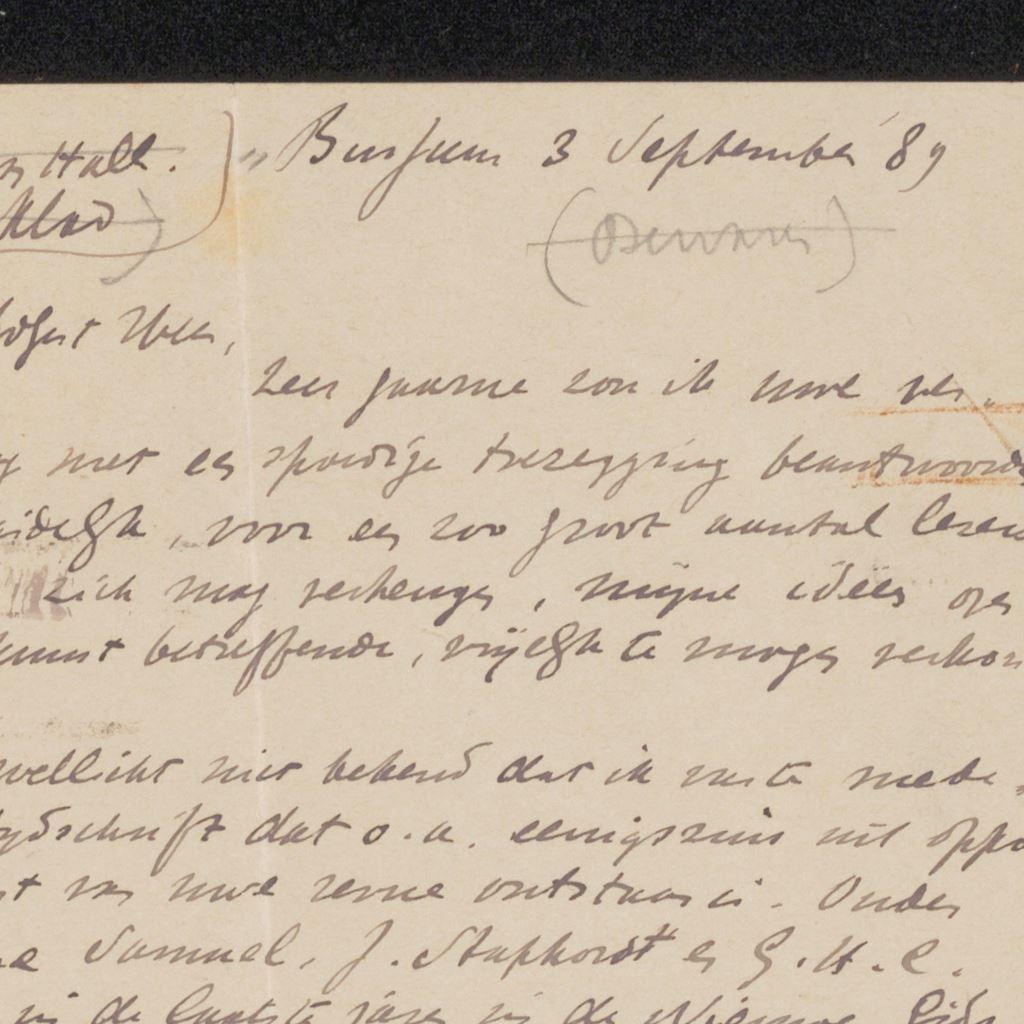 Hall. Bussum 3 September '89
Klad) (Bewaren)
Heer,
Zeer gaarne zou ik uwe ver-
met een spoedige toezegging beantwoorden
, voor een zoo groot aantal lezers
zich mag verheugen, mijne ideën over
kunst betreffende, vrijelijk te mogen verkon
wellicht niet bekend dat ik vaste mede-
tijdschrift dat o.a. eenigszins uit oppo
van uwe revue ontstaan is. Onder
Samuel, J. Staphorst en G.H.C.
in de laatste jaren in de Nieuwe Gids